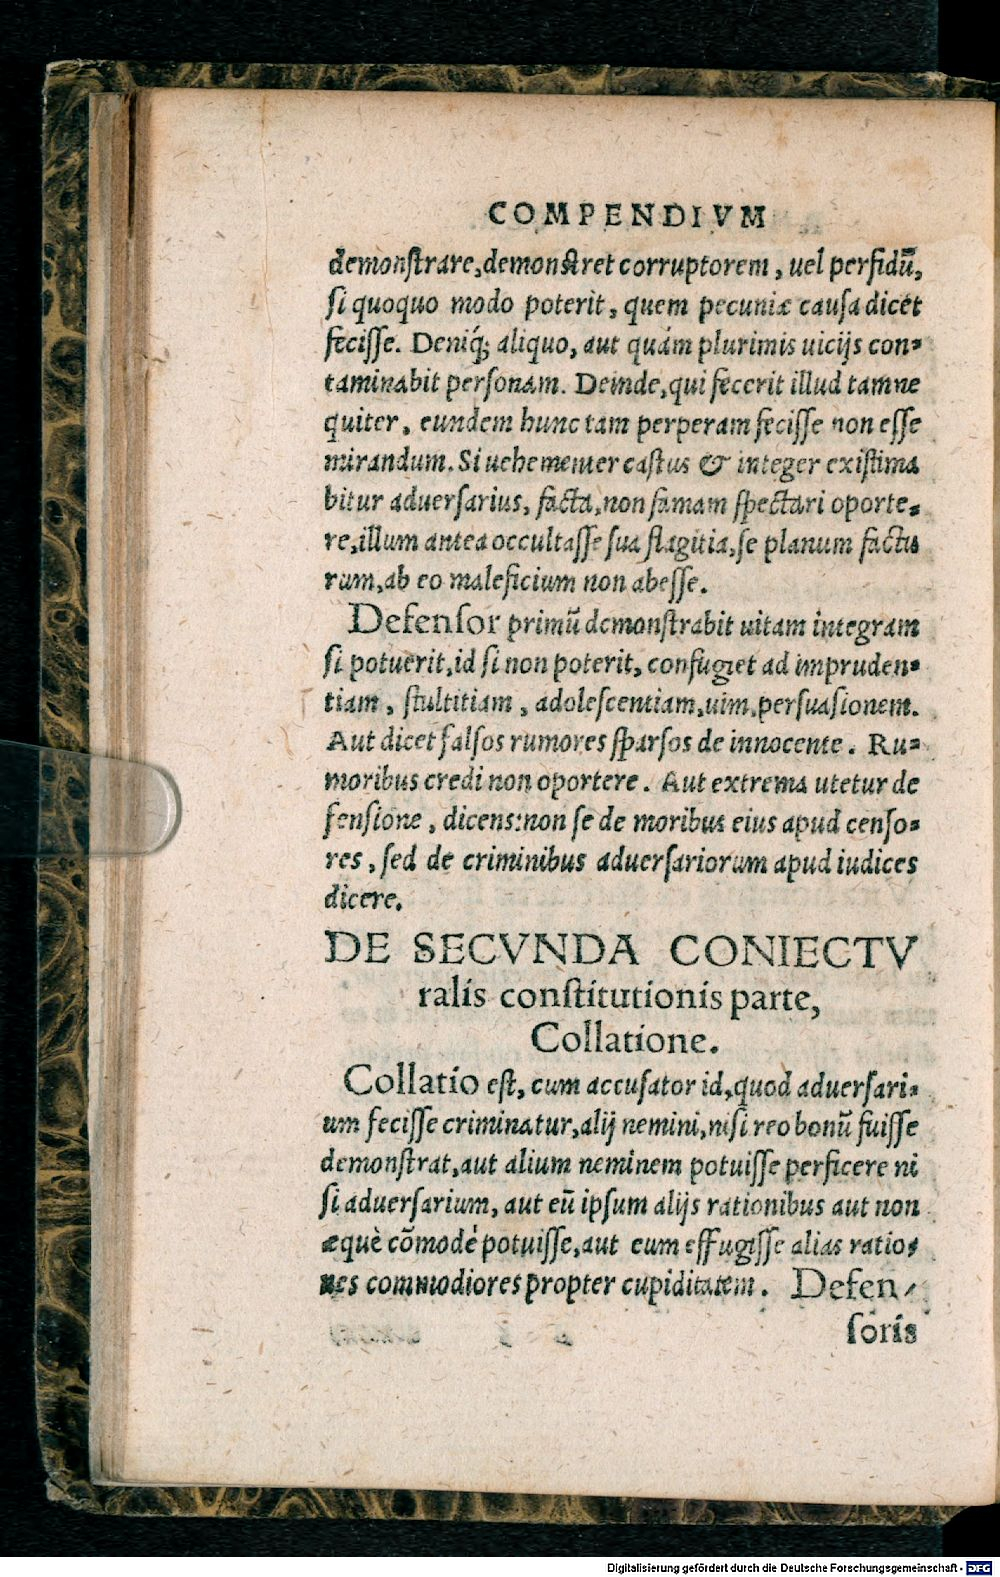 COMPENDIVM
demonſtrare, demonſtret corruptorem, uel perfidū,
ſi quoquo modo poterit, quem pecuniæ cauſa dicet
feciſſe. Deniq́; aliquo, aut quám plurimis uicijs con-
taminabit perſonam. Deinde, qui fecerit illud tam ne
quiter, eundem hunc tam perperam feciſſe non eſſe
mirandum. Si uehementer caſtus & integer exiſtima
bitur aduerſarius, facta, non famam ſpectari oporte-
re, illum antea occultaſſe ſua flagitia, ſe planum factu
rum, ab eo maleficium non abeſſe.
Defenſor primū demonſtrabit uitam integram
ſi potuerit, id ſi non poterit, confugiet ad impruden-
tiam, ſtultitiam, adoleſcentiam, uim, perſuaſionem.
Aut dicet falſos rumores ſparſos de innocente. Ru-
moribus credi non oportere. Aut extrema utetur de
fenſione, dicens: non ſe de moribus eius apud cenſo-
res, ſed de criminibus aduerſariorum apud iudices
dicere.
DE SECVNDA CONIECTV
ralis conſtitutionis parte,
Collatione.
Collatio eſt, cum accuſator id, quod aduerſari-
um feciſſe criminatur, alij nemini, niſi reo bonū fuiſſe
demonſtrat, aut alium neminem potuiſſe perficere ni
ſi aduerſarium, aut eū ipſum alijs rationibus aut non
æquè cōmodé potuiſſe, aut eum effugiſſe alias ratio-
nes commodiores propter cupiditatem. Defen-
ſoris
Digitalisierung gefördert durch die Deutsche Forschungsgemeinschaft - DFG